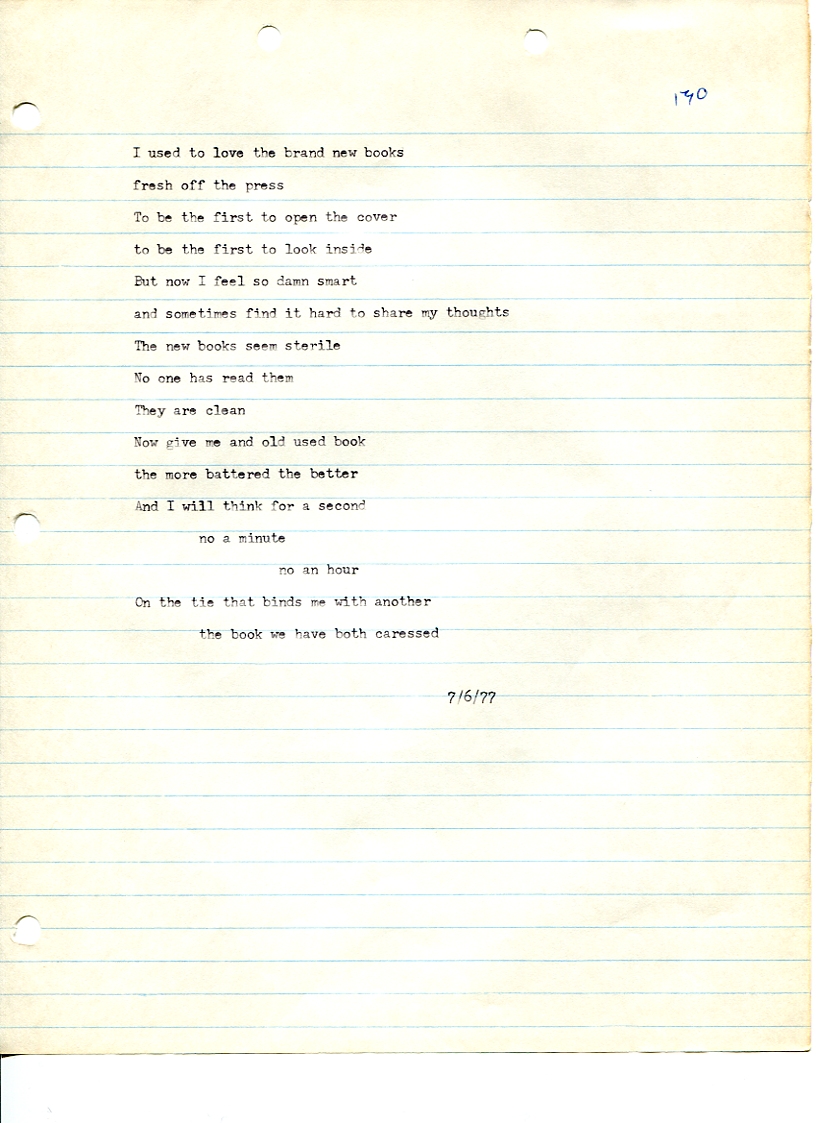 190
I used to love the brand new books
fresh off the press
To be the first to open the cover
to be the first to look inside
But now I feel so damn smart
and sometimes find it hard to share my thoughts
The new books seem sterile
No one has read them
They are clean
Now give me and old used book
the more battered the better
And I will think for a second
no a minute
no an hour
On the tie that binds me with another
the book we have both caressed
7/6/77